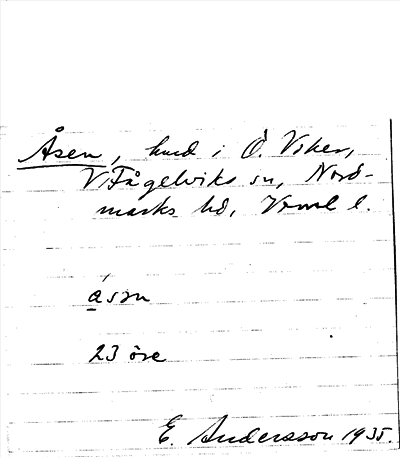 Åsen, hmd i Ö. Viker,
V. Fågelviks sn, Nord-
marks hd, Vrml l.
åsn
23 öre
E. Andersson 1935.